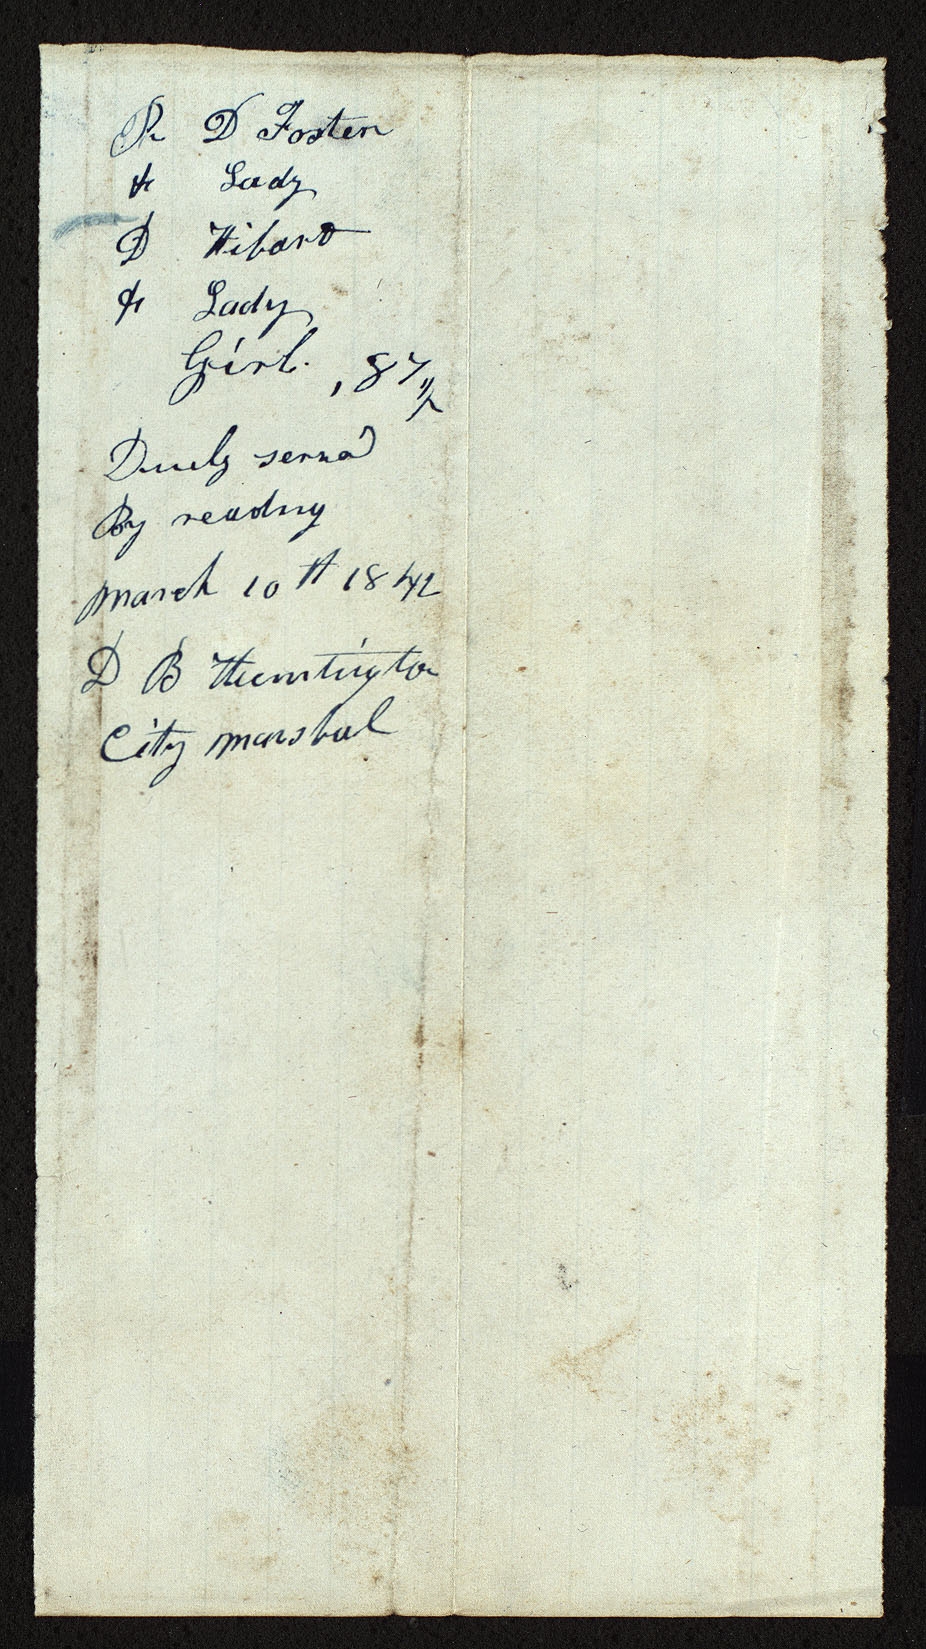 R D Foster
& Lady
D Hibard
& Lady
Girl. ,87 1/2
Duely servd
By readng
march 10th 1842
D B Huntington
City marshal